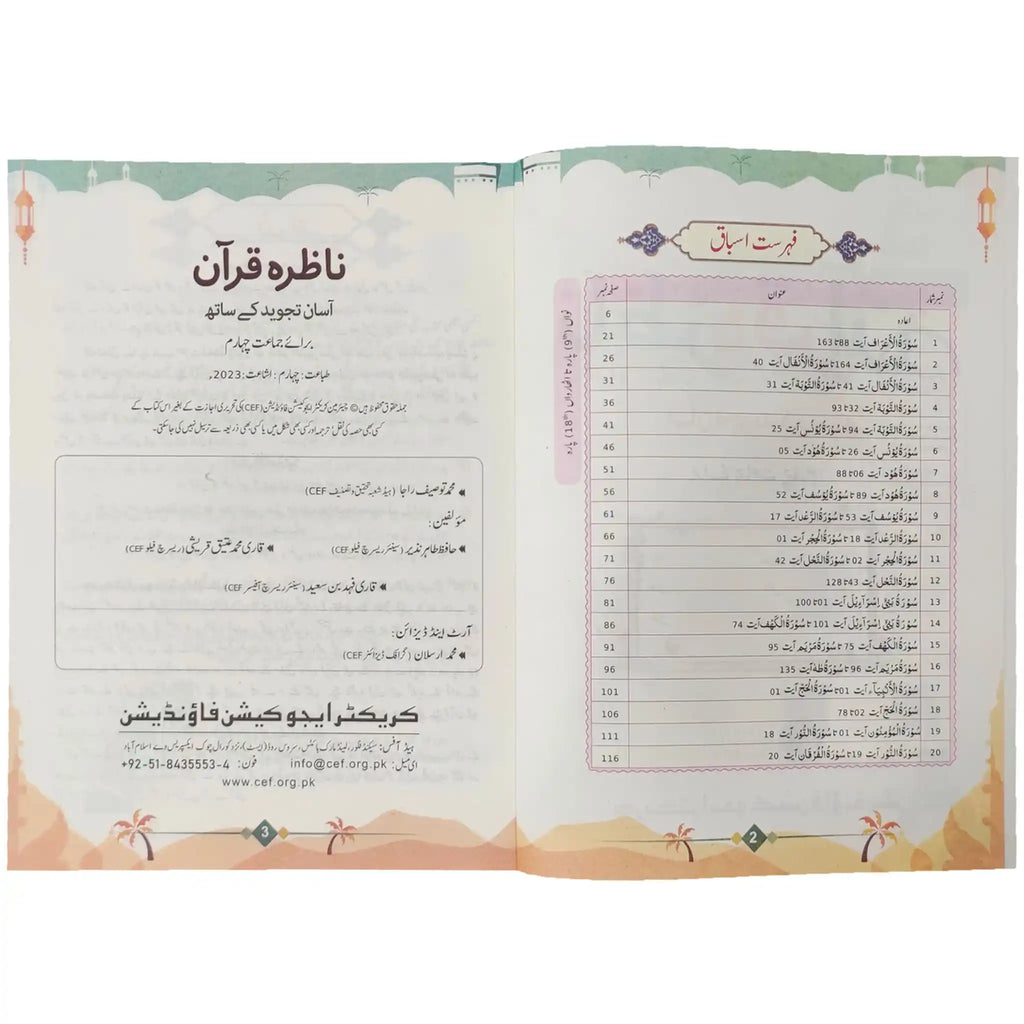 فہرست اسباق
نمبر شمار عنوان صفحہ نمبر
اعادہ 6
1 سُوْرَةُ الْأَعْرَاف آیت 88 تا 163 21
2 سُوْرَةُ الْأَعْرَاف آیت 164 تا سُوْرَةُ الْأَنْفَال آیت 40 26
3 سُوْرَةُ الْأَنْفَال آیت 41 تا سُوْرَةُ التَّوْبَة آیت 31 31
4 سُوْرَةُ التَّوْبَة آیت 32 تا 93 36
5 سُوْرَةُ التَّوْبَة آیت 94 تا سُوْرَةُ يُوْنُس آیت 25 41
6 سُوْرَةُ يُوْنُس آیت 26 تا سُوْرَةُ هُوْد آیت 05 46
7 سُوْرَةُ هُوْد آیت 06 تا 88 51
8 سُوْرَةُ هُوْد آیت 89 تا سُوْرَةُ يُوْسُف آیت 52 56
9 سُوْرَةُ يُوْسُف آیت 53 تا سُوْرَةُ الرَّعْد آیت 17 61
10 سُوْرَةُ الرَّعْد آیت 18 تا سُوْرَةُ الْحِجْر آیت 01 66
11 سُوْرَةُ الْحِجْر آیت 02 تا سُوْرَةُ النَّحْل آیت 42 71
12 سُوْرَةُ النَّحْل آیت 43 تا 128 76
13 سُوْرَةُ بَنِيْ اِسْرَآءِيْل آیت 01 تا 100 81
14 سُوْرَةُ بَنِيْ اِسْرَآءِيْل آیت 101 تا سُوْرَةُ الْكَهْف آیت 74 86
15 سُوْرَةُ الْكَهْف آیت 75 تا سُوْرَةُ مَرْيَم آیت 95 91
16 سُوْرَةُ مَرْيَم آیت 96 تا سُوْرَةُ طٰهٰ آیت 135 96
17 سُوْرَةُ الْأَنْبِيَآء آیت 01 تا سُوْرَةُ الْحَجّ آیت 01 101
18 سُوْرَةُ الْحَجّ آیت 02 تا 78 106
19 سُوْرَةُ الْمُؤْمِنُوْن آیت 01 تا سُوْرَةُ النُّوْر آیت 18 111
20 سُوْرَةُ النُّوْر آیت 19 تا سُوْرَةُ الْفُرْقَان آیت 20 116
نواں (9th) پارہ تا اٹھارواں (18th) پارہ
2
ناظرہ قرآن
آسان تجوید کے ساتھ
برائے جماعت چہارم
طباعت: چہارم : اشاعت: 2023ء
جملہ حقوق محفوظ ہیں © چیئرمین کریکٹر ایجوکیشن فاؤنڈیشن (CEF) کی تحریری اجازت کے بغیر اس کتاب کے
کسی بھی حصہ کی نقل، ترجمہ اور کسی بھی شکل میں یا کسی بھی ذریعہ سے ترسیل نہیں کی جا سکتی۔
محمد توصیف راجا (ہیڈ شعبہ تحقیق و تصنیف CEF)
مؤلفین:
حافظ طاہر نذیر (سینئر ریسرچ فیلو CEF) قاری محمد عتیق قریشی (ریسرچ فیلو CEF)
قاری فہد بن سعید (سینئر ریسرچ آفیسر CEF)
آرٹ اینڈ ڈیزائن:
محمد ارسلان (گرافک ڈیزائنر CEF)
کریکٹر ایجوکیشن فاؤنڈیشن
ہیڈ آفس: سیکنڈ فلور، لینڈ مارک ہائٹس، سروس روڈ (ایسٹ)، نزد کورال چوک ایکسپریس وے اسلام آباد
ای میل: info@cef.org.pk فون: +92-51-8435553-4
www.cef.org.pk
3